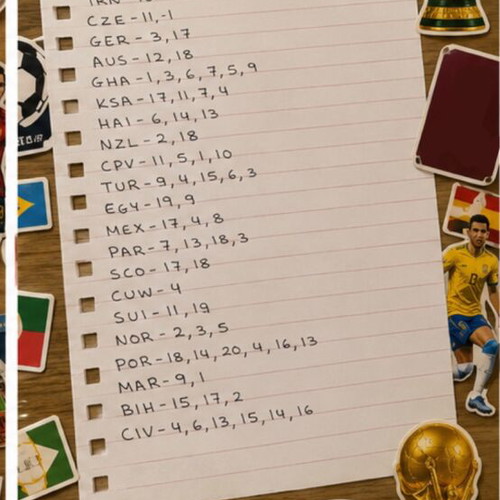 CZE-11,-1
GER-3,17
AUS-12,18
GHA-1,3,6,7,5,9
KSA-17,11,7,4
HAI-6,14,13
NZL-2,18
CPV-11,5,1,10
TUR-9,4,15,6,3
EGY-19,9
MEX-17,4,8
PAR-7,13,18,3
SCO-17,18
CUW-4
SUI-11,19
NOR-2,3,5
POR-18,14,20,4,16,13
MAR-9,1
BIH-15,17,2
CIV-4,6,13,15,14,16